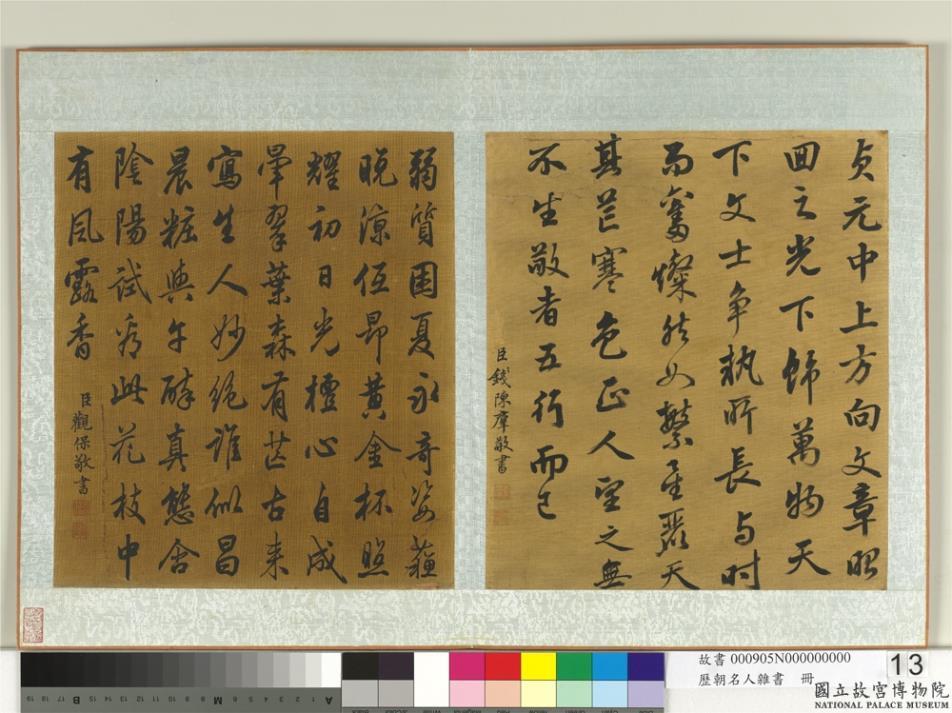 貞元中上方向文章昭
回之光下飾萬物天
下文士爭執所長与时
而奮燦然如繁星麗天
其芒寒色正人望之無
不生敬者五行而已
臣錢陳羣敬書
弱質困夏永奇姿蘓
晚涼低昂黃金杯照
耀初日光檀心自成
暈翠葉森有芒古来
寫生人妙絕誰似昌
晨粧與午醉真態含
陰陽試看此花枝中
有風露香
臣觀保敬書
故書 000905N000000000
歷朝名人雜書 冊
13
國立故宮博物院
NATIONAL PALACE MUSEUM